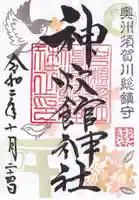 奥州須賀川総鎮守
神炊館神社
令和三年十月二十四日